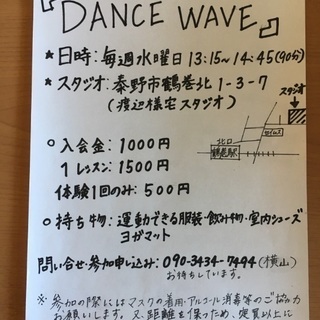 『DANCE WAVE』
★日時:毎週水曜日 13:15〜14:45(90分)
★スタジオ:秦野市鶴巻北1-3-7
(渡辺様宅スタジオ)
スタジオ
北口
鶴巻駅
○入会金:1000円
1レッスン:1500円
体験1回のみ:500円
○持ち物:運動できる服装・飲み物・室内シューズ
ヨガマット
問い合せ・参加申し込み:090-3434-7494(横山)
お待ちしています。
※参加の際にはマスクの着用・アルコール消毒等のご協力
お願いします。又、距離を保つため、定員以上に